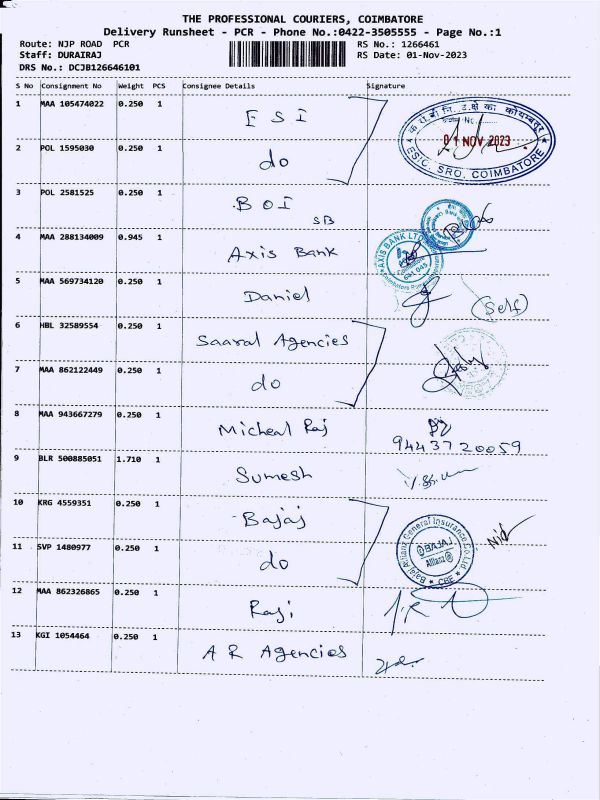 THE PROFESSIONAL COURIERS, COIMBATORE
Delivery Runsheet - PCR - Phone No.:0422-3505555 - Page No.:1
Route: NJP ROAD PCR
Staff: DURAIRAJ
DRS No.: DCJB126646101
RS No.: 1266461
RS Date: 01-Nov-2023
S No Consignment No Weight PCS Consignee Details Signature
1 MAA 105474022 0.250 1 ESI
01 NOV 2023
ESIC SRO, COIMBATORE
2 POL 1595030 0.250 1 do
3 POL 2581525 0.250 1 BOI
SB
4 MAA 288134009 0.945 1 Axis Bank
AXIS BANK LTD
5 MAA 569734120 0.250 1 Daniel (Self)
6 HBL 32589554 0.250 1 Saaral Agencies
7 MAA 862122449 0.250 1 do
8 MAA 943667279 0.250 1 Micheal Raj
9443720059
9 BLR 500885051 1.710 1 Sumesh
10 KRG 4559351 0.250 1 Bajaj
Bajaj Allianz General Insurance Co. Ltd
BAJAJ
Allianz
CBE
11 SVP 1480977 0.250 1 do
12 MAA 862326865 0.250 1 Raji
13 KGI 1054464 0.250 1 A R Agencies